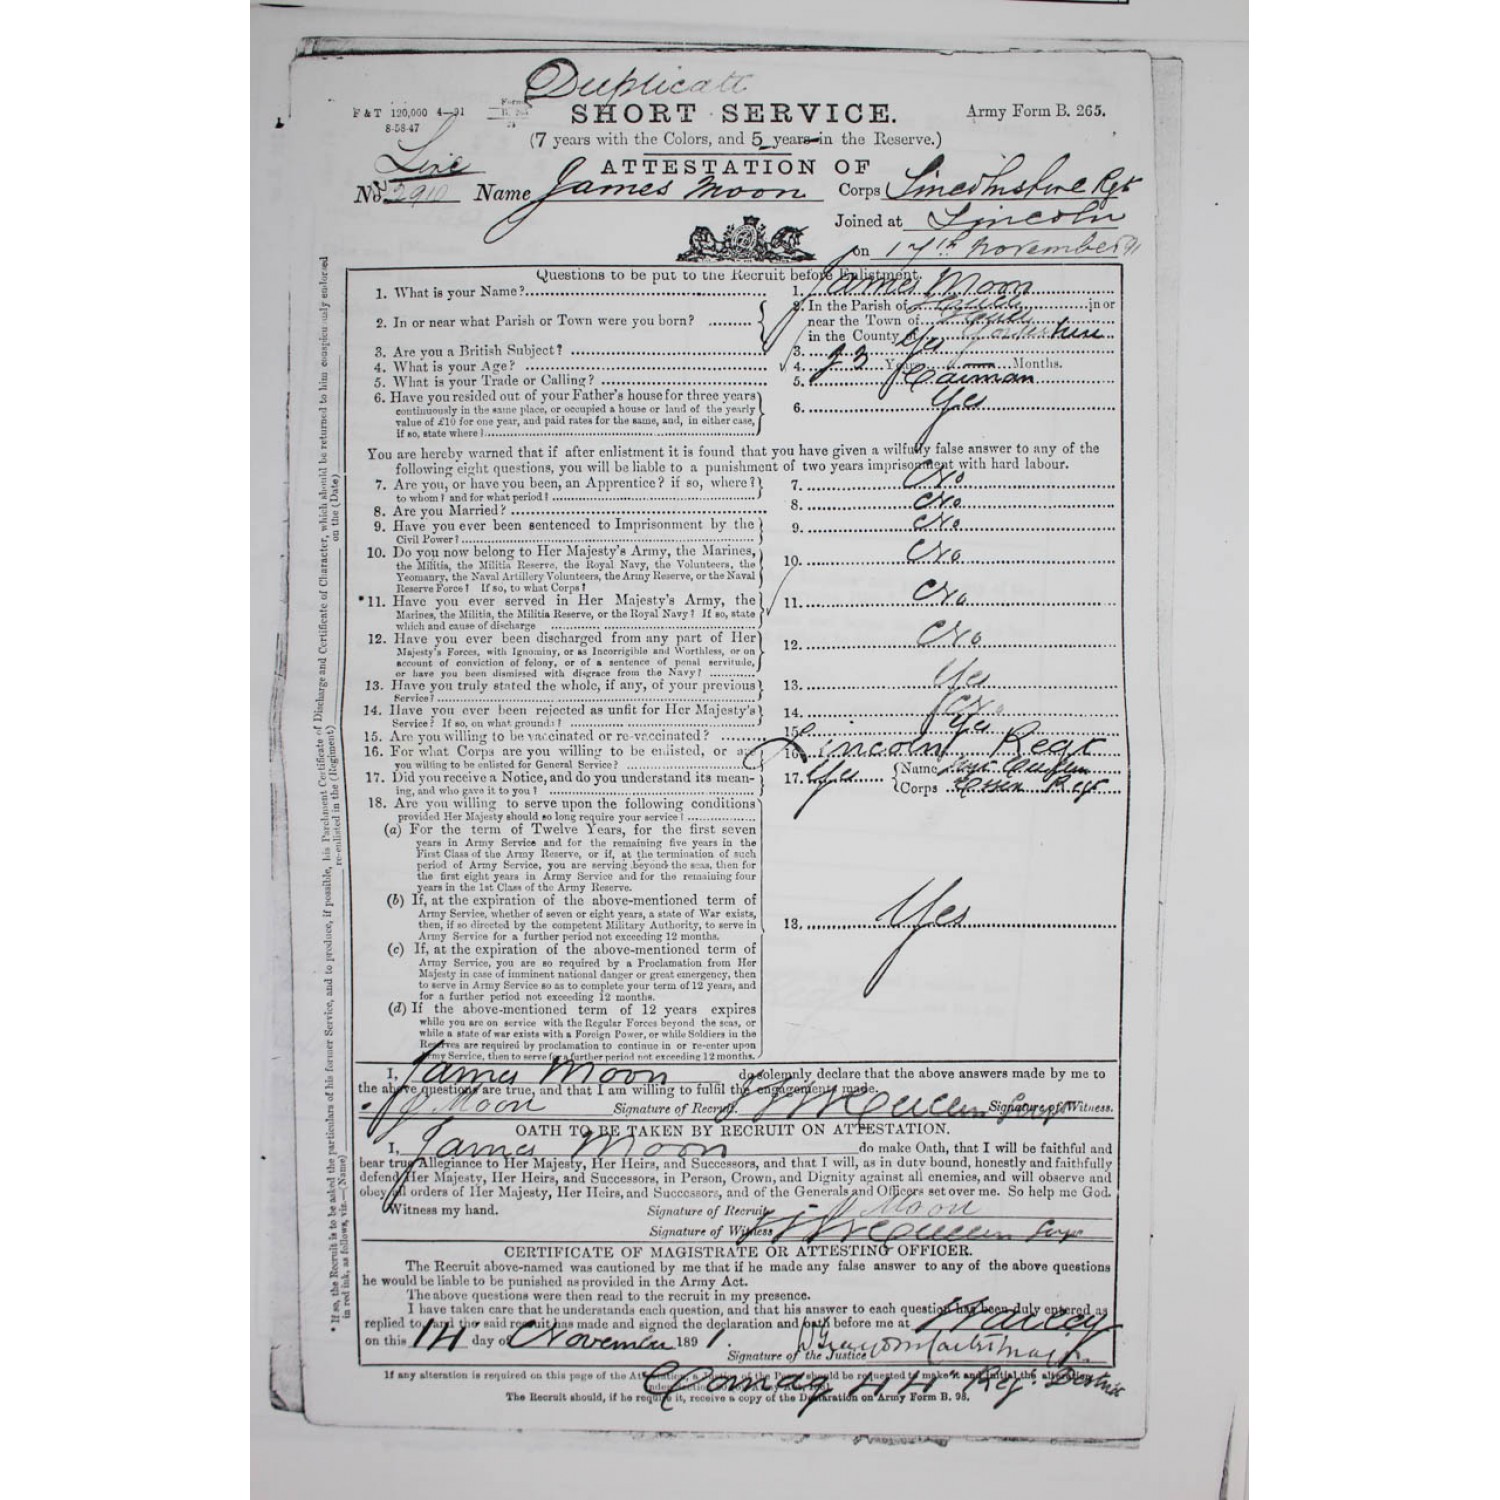 Duplicate
F & T 120,000 4—91
8-58-47
SHORT SERVICE.
Army Form B. 265.
(7 years with the Colors, and 5 years in the Reserve.)
Line
ATTESTATION OF
No. 2910 Name James Moon Corps Lincolnshire Regt
Joined at Lincoln
on 17th November 91
Questions to be put to the Recruit before Enlistment.
1. What is your Name? 1. James Moon
2. In or near what Parish or Town were you born? 2. In the Parish of in or
near the Town of
in the County of Yorkshire
3. Are you a British Subject? 3. Yes
4. What is your Age? 4. 23 Years Months.
5. What is your Trade or Calling? 5. Carman
6. Have you resided out of your Father's house for three years 6. Yes
continuously in the same place, or occupied a house or land of the yearly
value of £10 for one year, and paid rates for the same, and, in either case,
if so, state where?
You are hereby warned that if after enlistment it is found that you have given a wilfully false answer to any of the
following eight questions, you will be liable to a punishment of two years imprisonment with hard labour.
7. Are you, or have you been, an Apprentice? if so, where? 7. No
to whom? and for what period?
8. Are you Married? 8. No
9. Have you ever been sentenced to Imprisonment by the 9. No
Civil Power?
10. Do you now belong to Her Majesty's Army, the Marines, 10. No
the Militia, the Militia Reserve, the Royal Navy, the Volunteers, the
Yeomanry, the Naval Artillery Volunteers, the Army Reserve, or the Naval
Reserve Force? If so, to what Corps?
*11. Have you ever served in Her Majesty's Army, the 11. No
Marines, the Militia, the Militia Reserve, or the Royal Navy? If so, state
which and cause of discharge
12. Have you ever been discharged from any part of Her 12. No
Majesty's Forces, with Ignominy, or as Incorrigible and Worthless, or on
account of conviction of felony, or of a sentence of penal servitude,
or have you been dismissed with disgrace from the Navy?
13. Have you truly stated the whole, if any, of your previous 13. Yes
Service?
14. Have you ever been rejected as unfit for Her Majesty's 14. No
Service? If so, on what ground?
15. Are you willing to be vaccinated or re-vaccinated? 15. Yes
16. For what Corps are you willing to be enlisted, or are 16. Lincoln Regt
you willing to be enlisted for General Service?
17. Did you receive a Notice, and do you understand its mean- 17. Yes Name
ing, and who gave it to you? Corps Essex Regt
18. Are you willing to serve upon the following conditions
provided Her Majesty should so long require your service?
(a) For the term of Twelve Years, for the first seven
years in Army Service and for the remaining five years in the
First Class of the Army Reserve, or if, at the termination of such
period of Army Service, you are serving beyond the seas, then for
the first eight years in Army Service and for the remaining four
years in the 1st Class of the Army Reserve.
(b) If, at the expiration of the above-mentioned term of
Army Service, whether of seven or eight years, a state of War exists,
then, if so directed by the competent Military Authority, to serve in 18. Yes
Army Service for a further period not exceeding 12 months.
(c) If, at the expiration of the above-mentioned term of
Army Service, you are so required by a Proclamation from Her
Majesty in case of imminent national danger or great emergency, then
to serve in Army Service so as to complete your term of 12 years, and
for a further period not exceeding 12 months.
(d) If the above-mentioned term of 12 years expires
while you are on service with the Regular Forces beyond the seas, or
while a state of war exists with a Foreign Power, or while Soldiers in the
Reserves are required by proclamation to continue in or re-enter upon
Army Service, then to serve for a further period not exceeding 12 months.
I, James Moon do solemnly declare that the above answers made by me to
the above questions are true, and that I am willing to fulfil the engagements made.
J Moon Signature of Recruit. Signature of Witness.
OATH TO BE TAKEN BY RECRUIT ON ATTESTATION.
I, James Moon do make Oath, that I will be faithful and
bear true Allegiance to Her Majesty, Her Heirs, and Successors, and that I will, as in duty bound, honestly and faithfully
defend Her Majesty, Her Heirs, and Successors, in Person, Crown, and Dignity against all enemies, and will observe and
obey all orders of Her Majesty, Her Heirs, and Successors, and of the Generals and Officers set over me. So help me God.
Witness my hand. Signature of Recruit J Moon
Signature of Witness
CERTIFICATE OF MAGISTRATE OR ATTESTING OFFICER.
The Recruit above-named was cautioned by me that if he made any false answer to any of the above questions
he would be liable to be punished as provided in the Army Act.
The above questions were then read to the recruit in my presence.
I have taken care that he understands each question, and that his answer to each question has been duly entered as
replied to, and the said recruit has made and signed the declaration and oath before me at Warley
on this 14 day of November 1891.
Signature of the Justice
If any alteration is required on this page of the Attestation, a Justice of the Peace should be requested to make it and initial the alteration
Comdg 44th Reg. District
The Recruit should, if he require it, receive a copy of the Declaration on Army Form B. 98.
* If so, the Recruit is to be asked the particulars of his former Service, and to produce, if possible, his Parchment Certificate of Discharge and Certificate of Character, which should be returned to him conspicuously endorsed
in red ink, as follows, viz.—(Name) re-enlisted in the (Regiment) on the (Date)